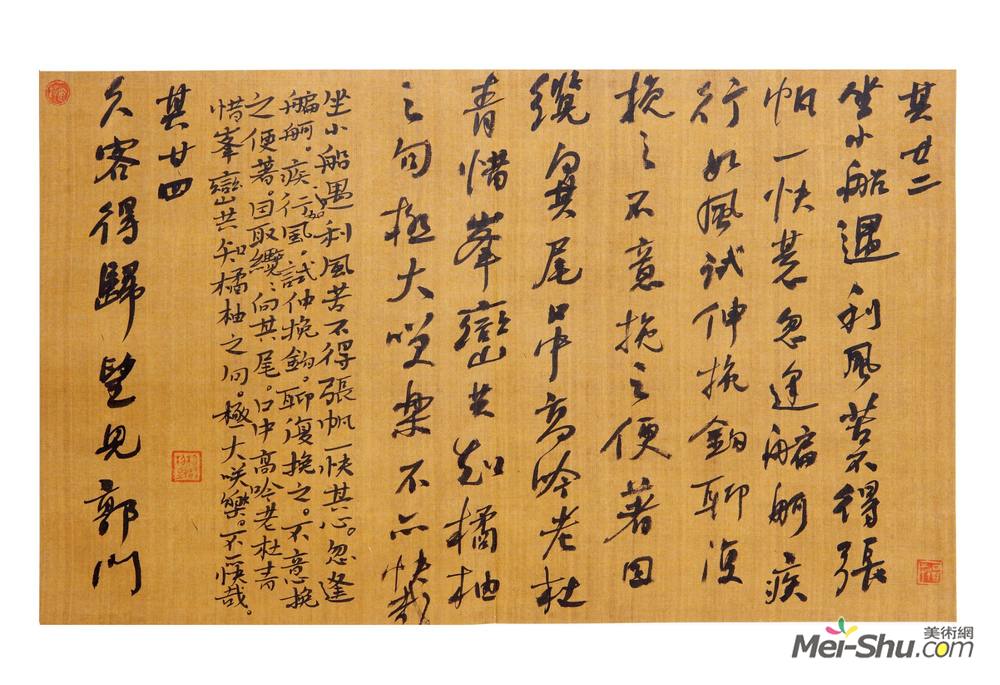 其廿二
坐小船遇利風苦不得張
帆一快其心忽逢艑舸疾
行如風試伸挽鉤聊復
挽之不意挽之便著因
纜向其尾口中高吟老杜
青惜峯巒共知橘柚
之句極大咲樂不亦快哉
坐小船遇利風苦不得張帆一快其心。忽逢
艑舸。疾行如風。試伸挽鉤。聊復挽之。不意挽
之便著。因取纜:向其尾。口中高吟老杜青
惜峯巒共知橘柚之句。極大咲樂。不亦快哉。
其廿四
久客得歸望見郭門
美術網
Mei-Shu.com